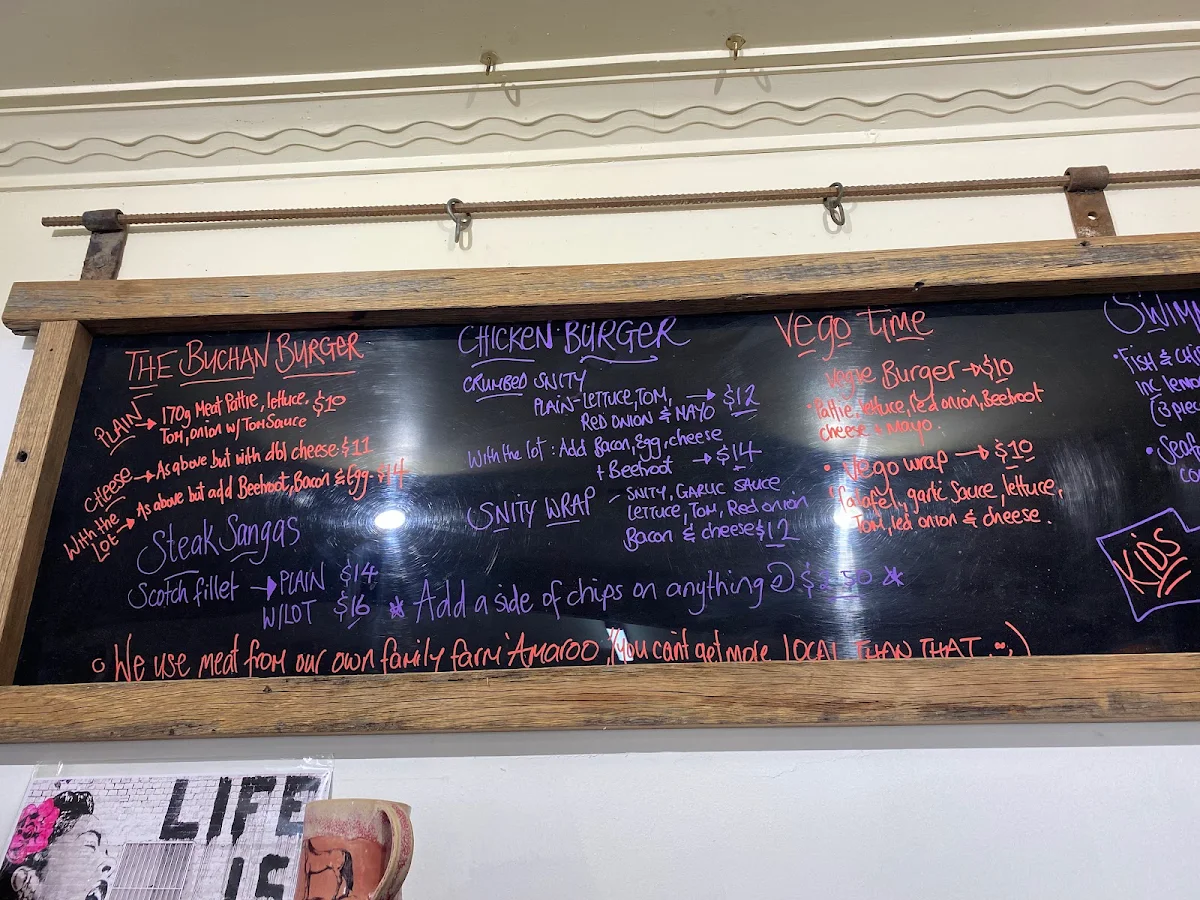 THE BUCHAN BURGER
PLAIN → 170g Meat Pattie, lettuce, $10
Tom, onion w/ Tom Sauce
Cheese → As above but with dbl cheese $11
With the Lot → As above but add Beetroot, Bacon & Egg $14
Steak Sangas
Scotch fillet → PLAIN $14
W/LOT $16
CHICKEN BURGER
CRUMBED SNITY
PLAIN - LETTUCE, TOM, → $12
RED ONION & MAYO
With the lot : Add Bacon, Egg, cheese
+ Beetroot → $14
SNITY WRAP - SNITY, GARLIC SAUCE
LETTUCE, TOM, Red onion
Bacon & cheese $12
Vego time
Vegie Burger → $10
Pattie, lettuce, red onion, Beetroot
cheese + Mayo.
• Vego wrap → $10
Falafel, garlic sauce, lettuce,
Tom, red onion & cheese.
* Add a side of chips on anything @ $ 50 *
o We use meat from our own family farm 'Amaroo' (you cant get more LOCAL THAN THAT :)
Swim
• Fish & chi
inc lemo
(3 pie
• Seaf
co
KIDS
LIFE
IS